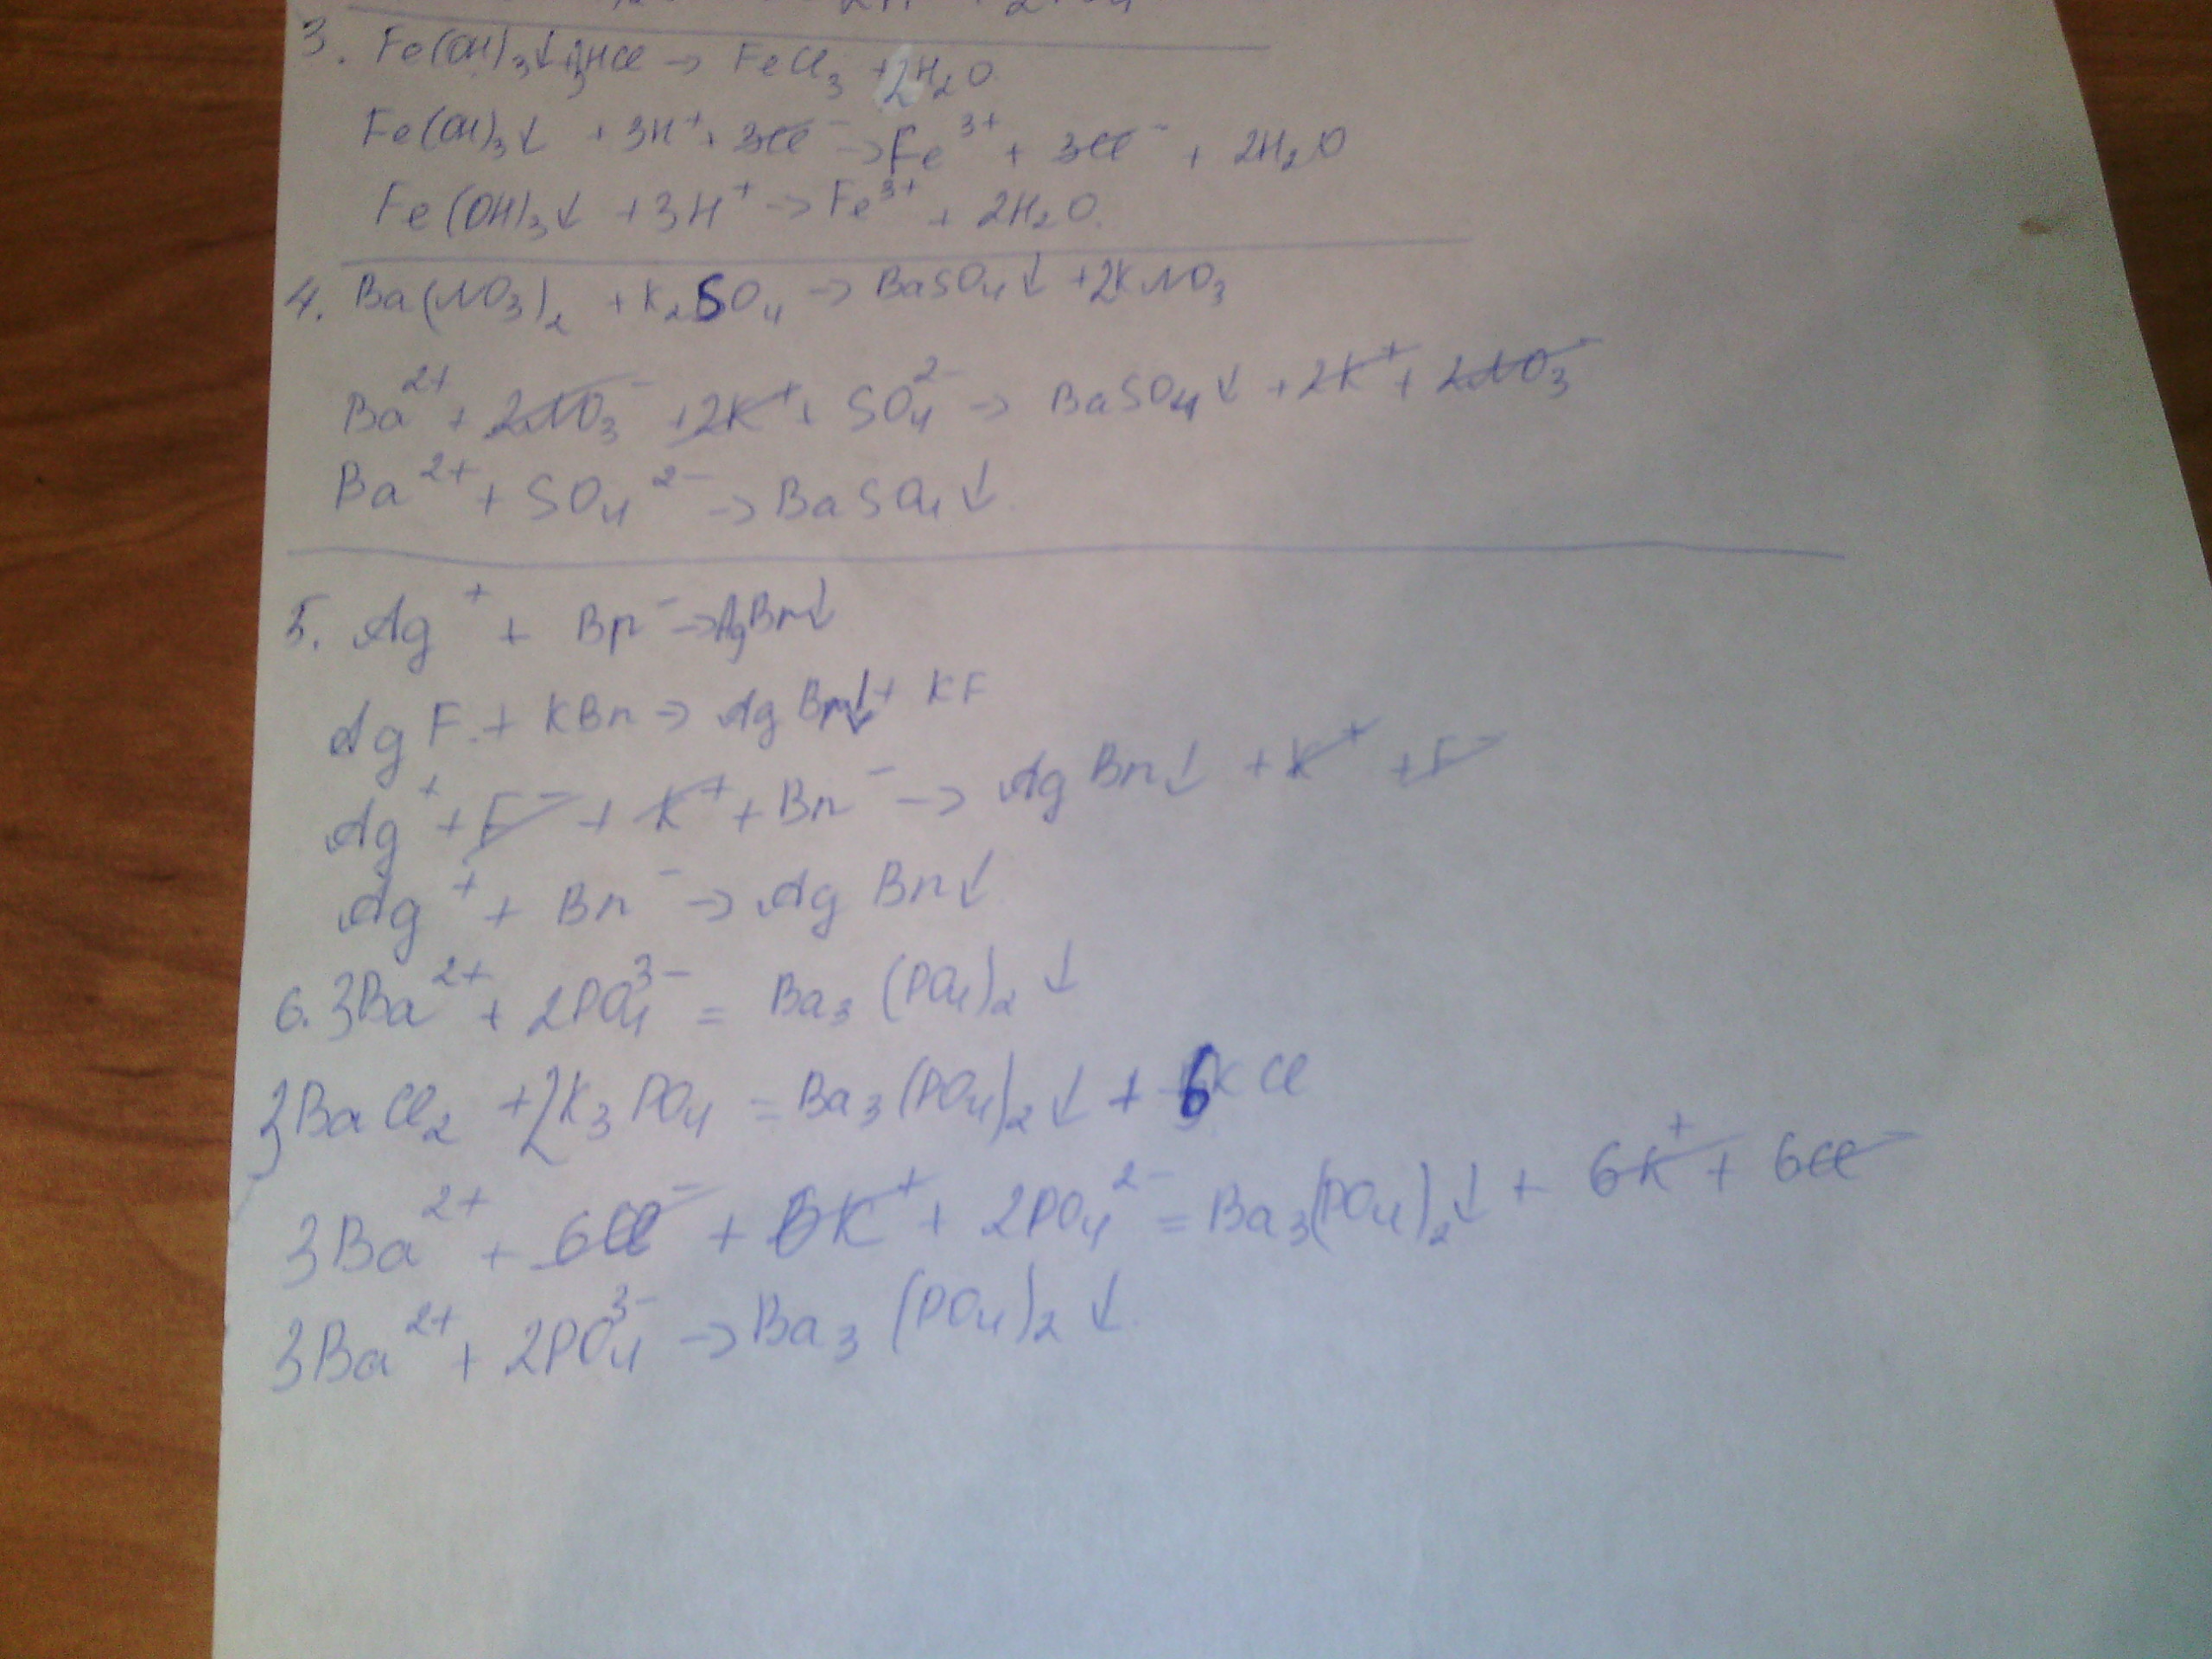 3. Fe(OH)₃↓ + 3HCl → FeCl₃ + 2H₂O
Fe(OH)₃↓ + 3H⁺ + 3Cl⁻ → Fe³⁺ + 3Cl⁻ + 2H₂O
Fe(OH)₃↓ + 3H⁺ → Fe³⁺ + 2H₂O.
4. Ba(NO₃)₂ + K₂SO₄ → BaSO₄↓ + 2KNO₃
Ba²⁺ + 2NO₃⁻ + 2K⁺ + SO₄²⁻ → BaSO₄↓ + 2K⁺ + 2NO₃⁻
Ba²⁺ + SO₄²⁻ → BaSO₄↓
5. Ag⁺ + Br⁻ → AgBr↓
AgF + KBr → AgBr↓ + KF
Ag⁺ + F⁻ + K⁺ + Br⁻ → AgBr↓ + K⁺ + F⁻
Ag⁺ + Br⁻ → AgBr↓
6. 3Ba²⁺ + 2PO₄³⁻ = Ba₃(PO₄)₂↓
3BaCl₂ + 2K₃PO₄ = Ba₃(PO₄)₂↓ + 6KCl
3Ba²⁺ + 6Cl⁻ + 6K⁺ + 2PO₄²⁻ = Ba₃(PO₄)₂↓ + 6K⁺ + 6Cl⁻
3Ba²⁺ + 2PO₄³⁻ → Ba₃(PO₄)₂↓.